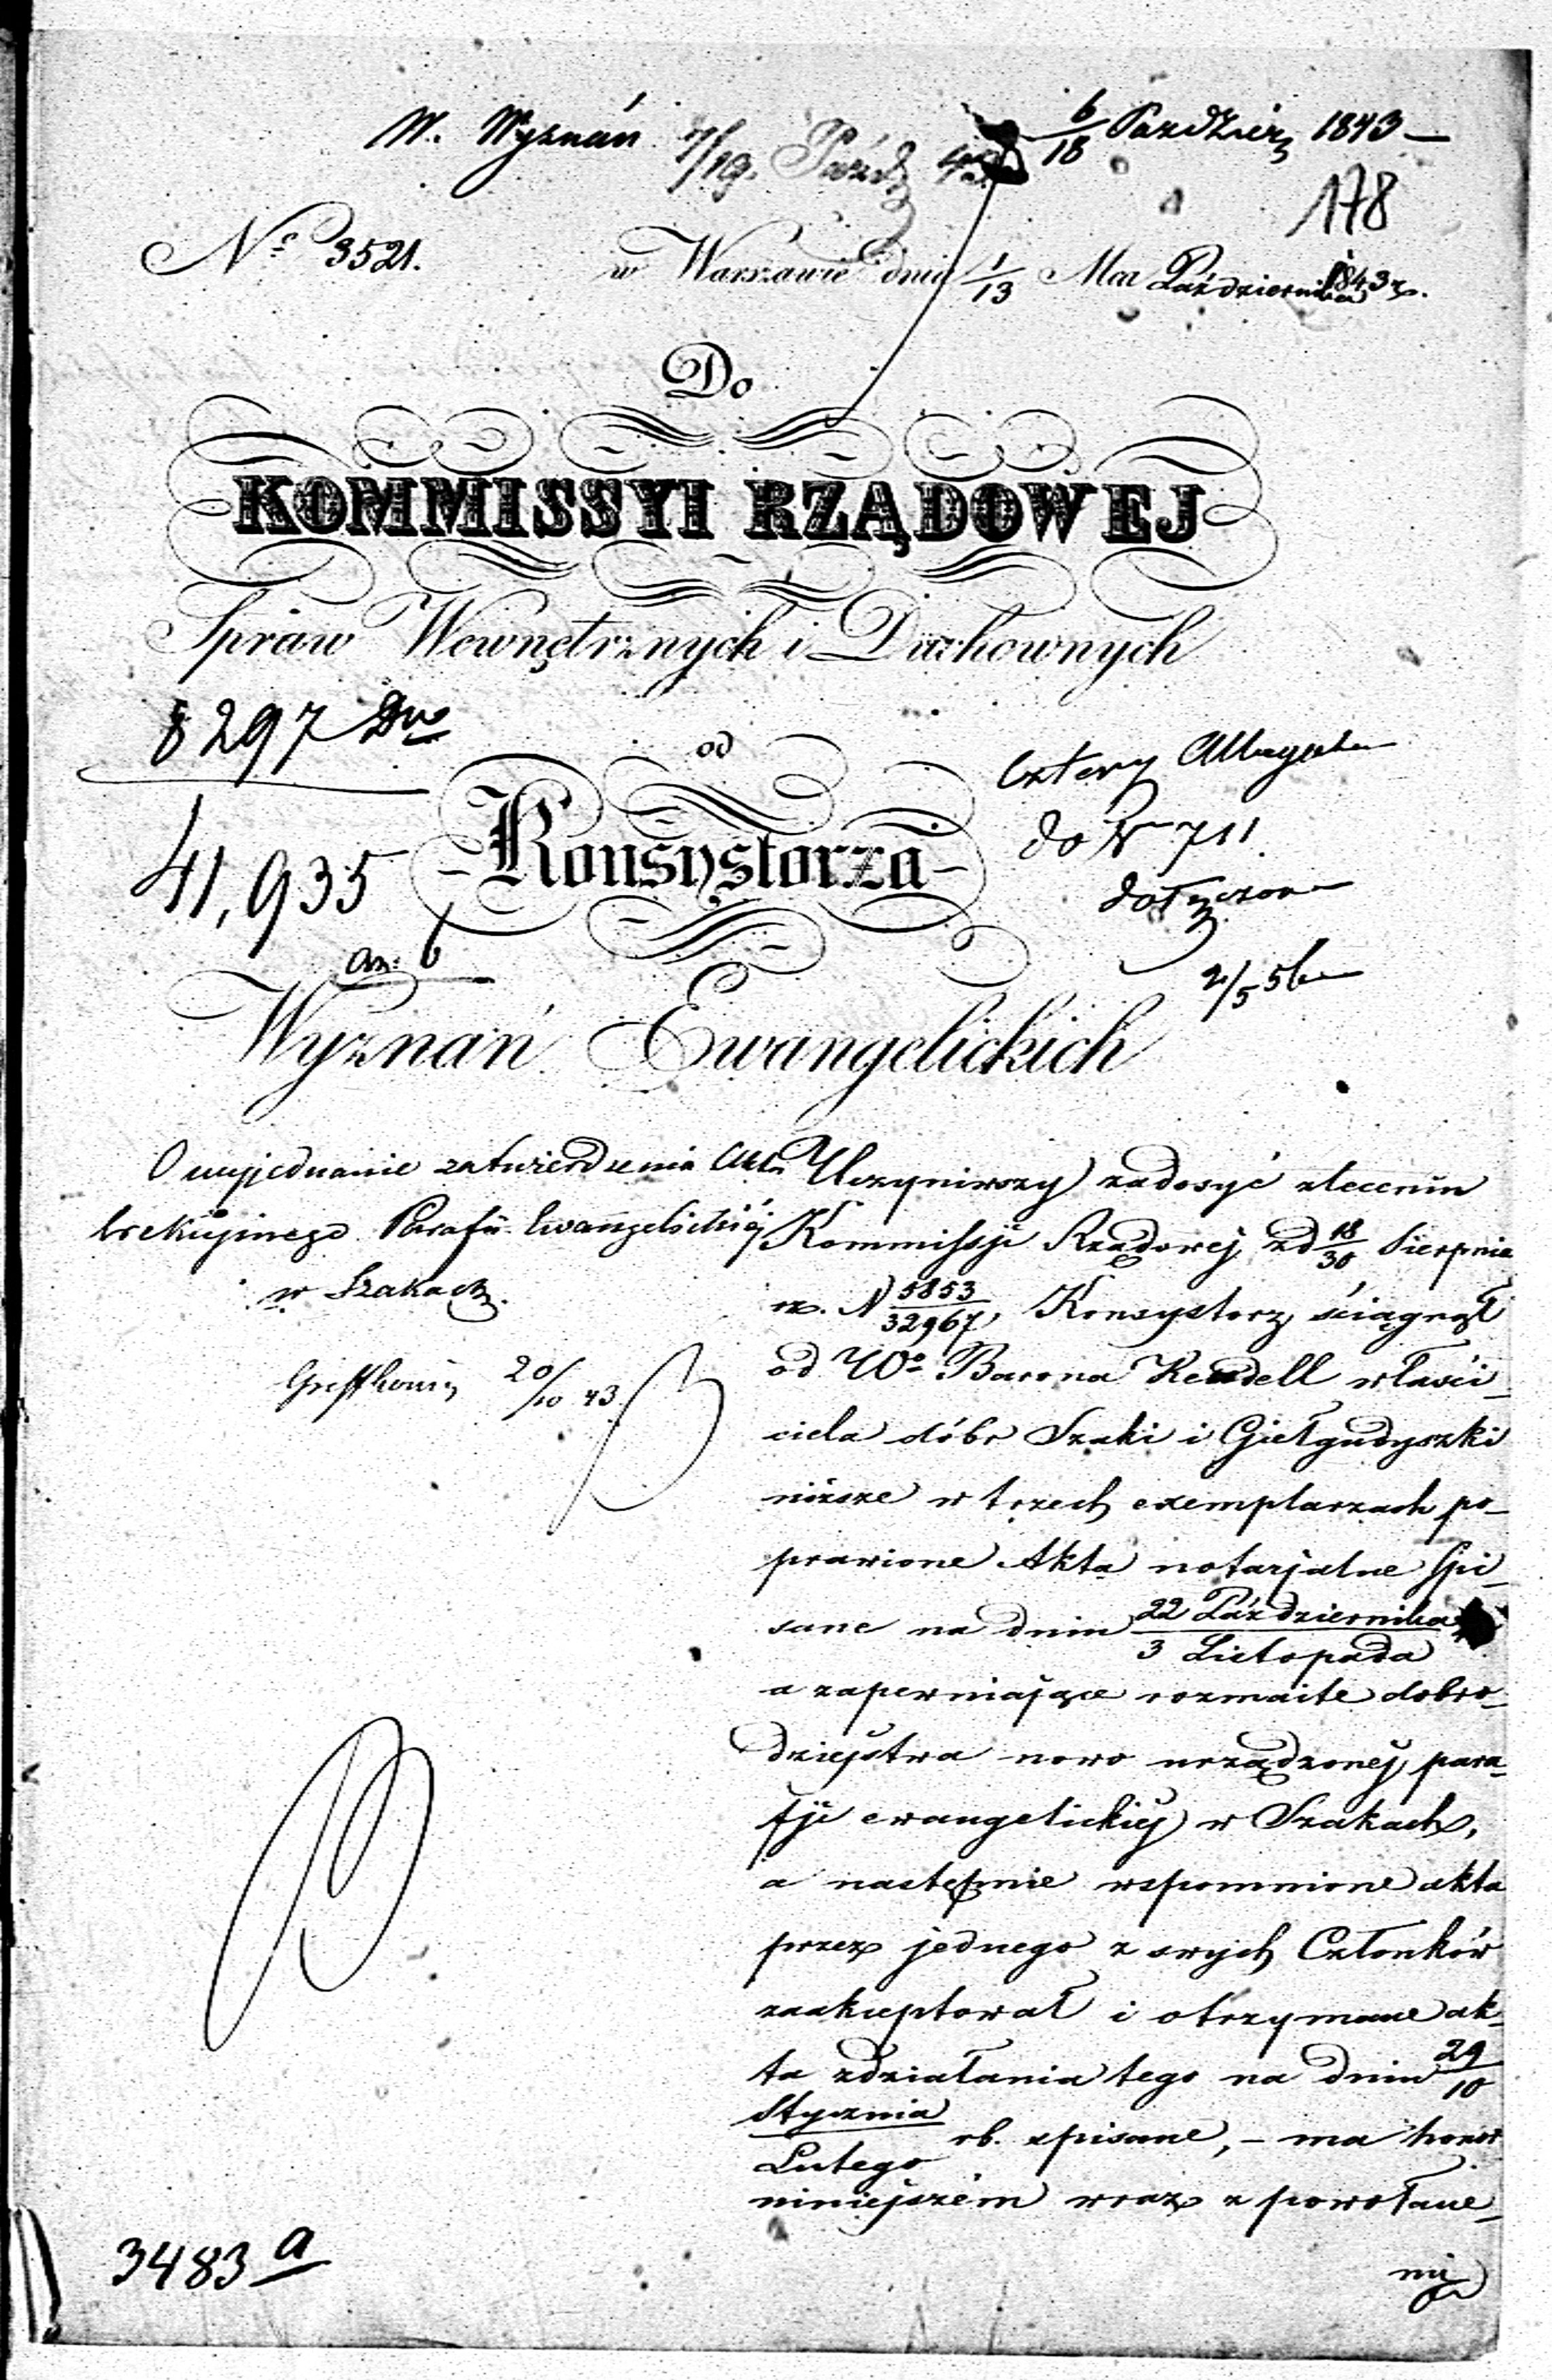 W. Wyznań 7/19. Paźdz 43 6/18 Paździer 1843 —
178
Nº 3521. w Warszawie dnia 1/13 Mca Października 1843 r.
Do
KOMMISSYI RZĄDOWEJ
Spraw Wewnętrznych i Duchownych
8297
od
cztery
Konsystorza
do N 711.
41,935
dołączone
6
2/5 56
Wyznań Ewangelickich
O wyjednanie zatwierdzenia Aktu
erekcyjnego Parafii Ewangelickiéj
w Szakach.
20/10 43
Uczyniwszy zadosyć zleceniu
Kommissyi Rządowej z d 18/30 Sierpnia
rz. N 5853/32967, Konsystorz ściągnął
od Wº Barona Keudell właści-
ciela dóbr Szaki i Giełgudyszki
niższe w trzech exemplarzach po-
prawione Akta notarjalne spi-
sane na dniu 22 Października/3 Listopada
a zapewniające rozmaite dobro-
dziejstwa nowo urządzonej para-
fji ewangelickiej w Szakach,
a następnie wspomnione akta
przez jednego z swych Członków
zaakceptował i otrzymane ak-
ta zdziałania tego na dniu 29/10
Stycznia/Lutego rb. spisane, – ma honor
niniejszém wraz z powołane-
mi
3483 a